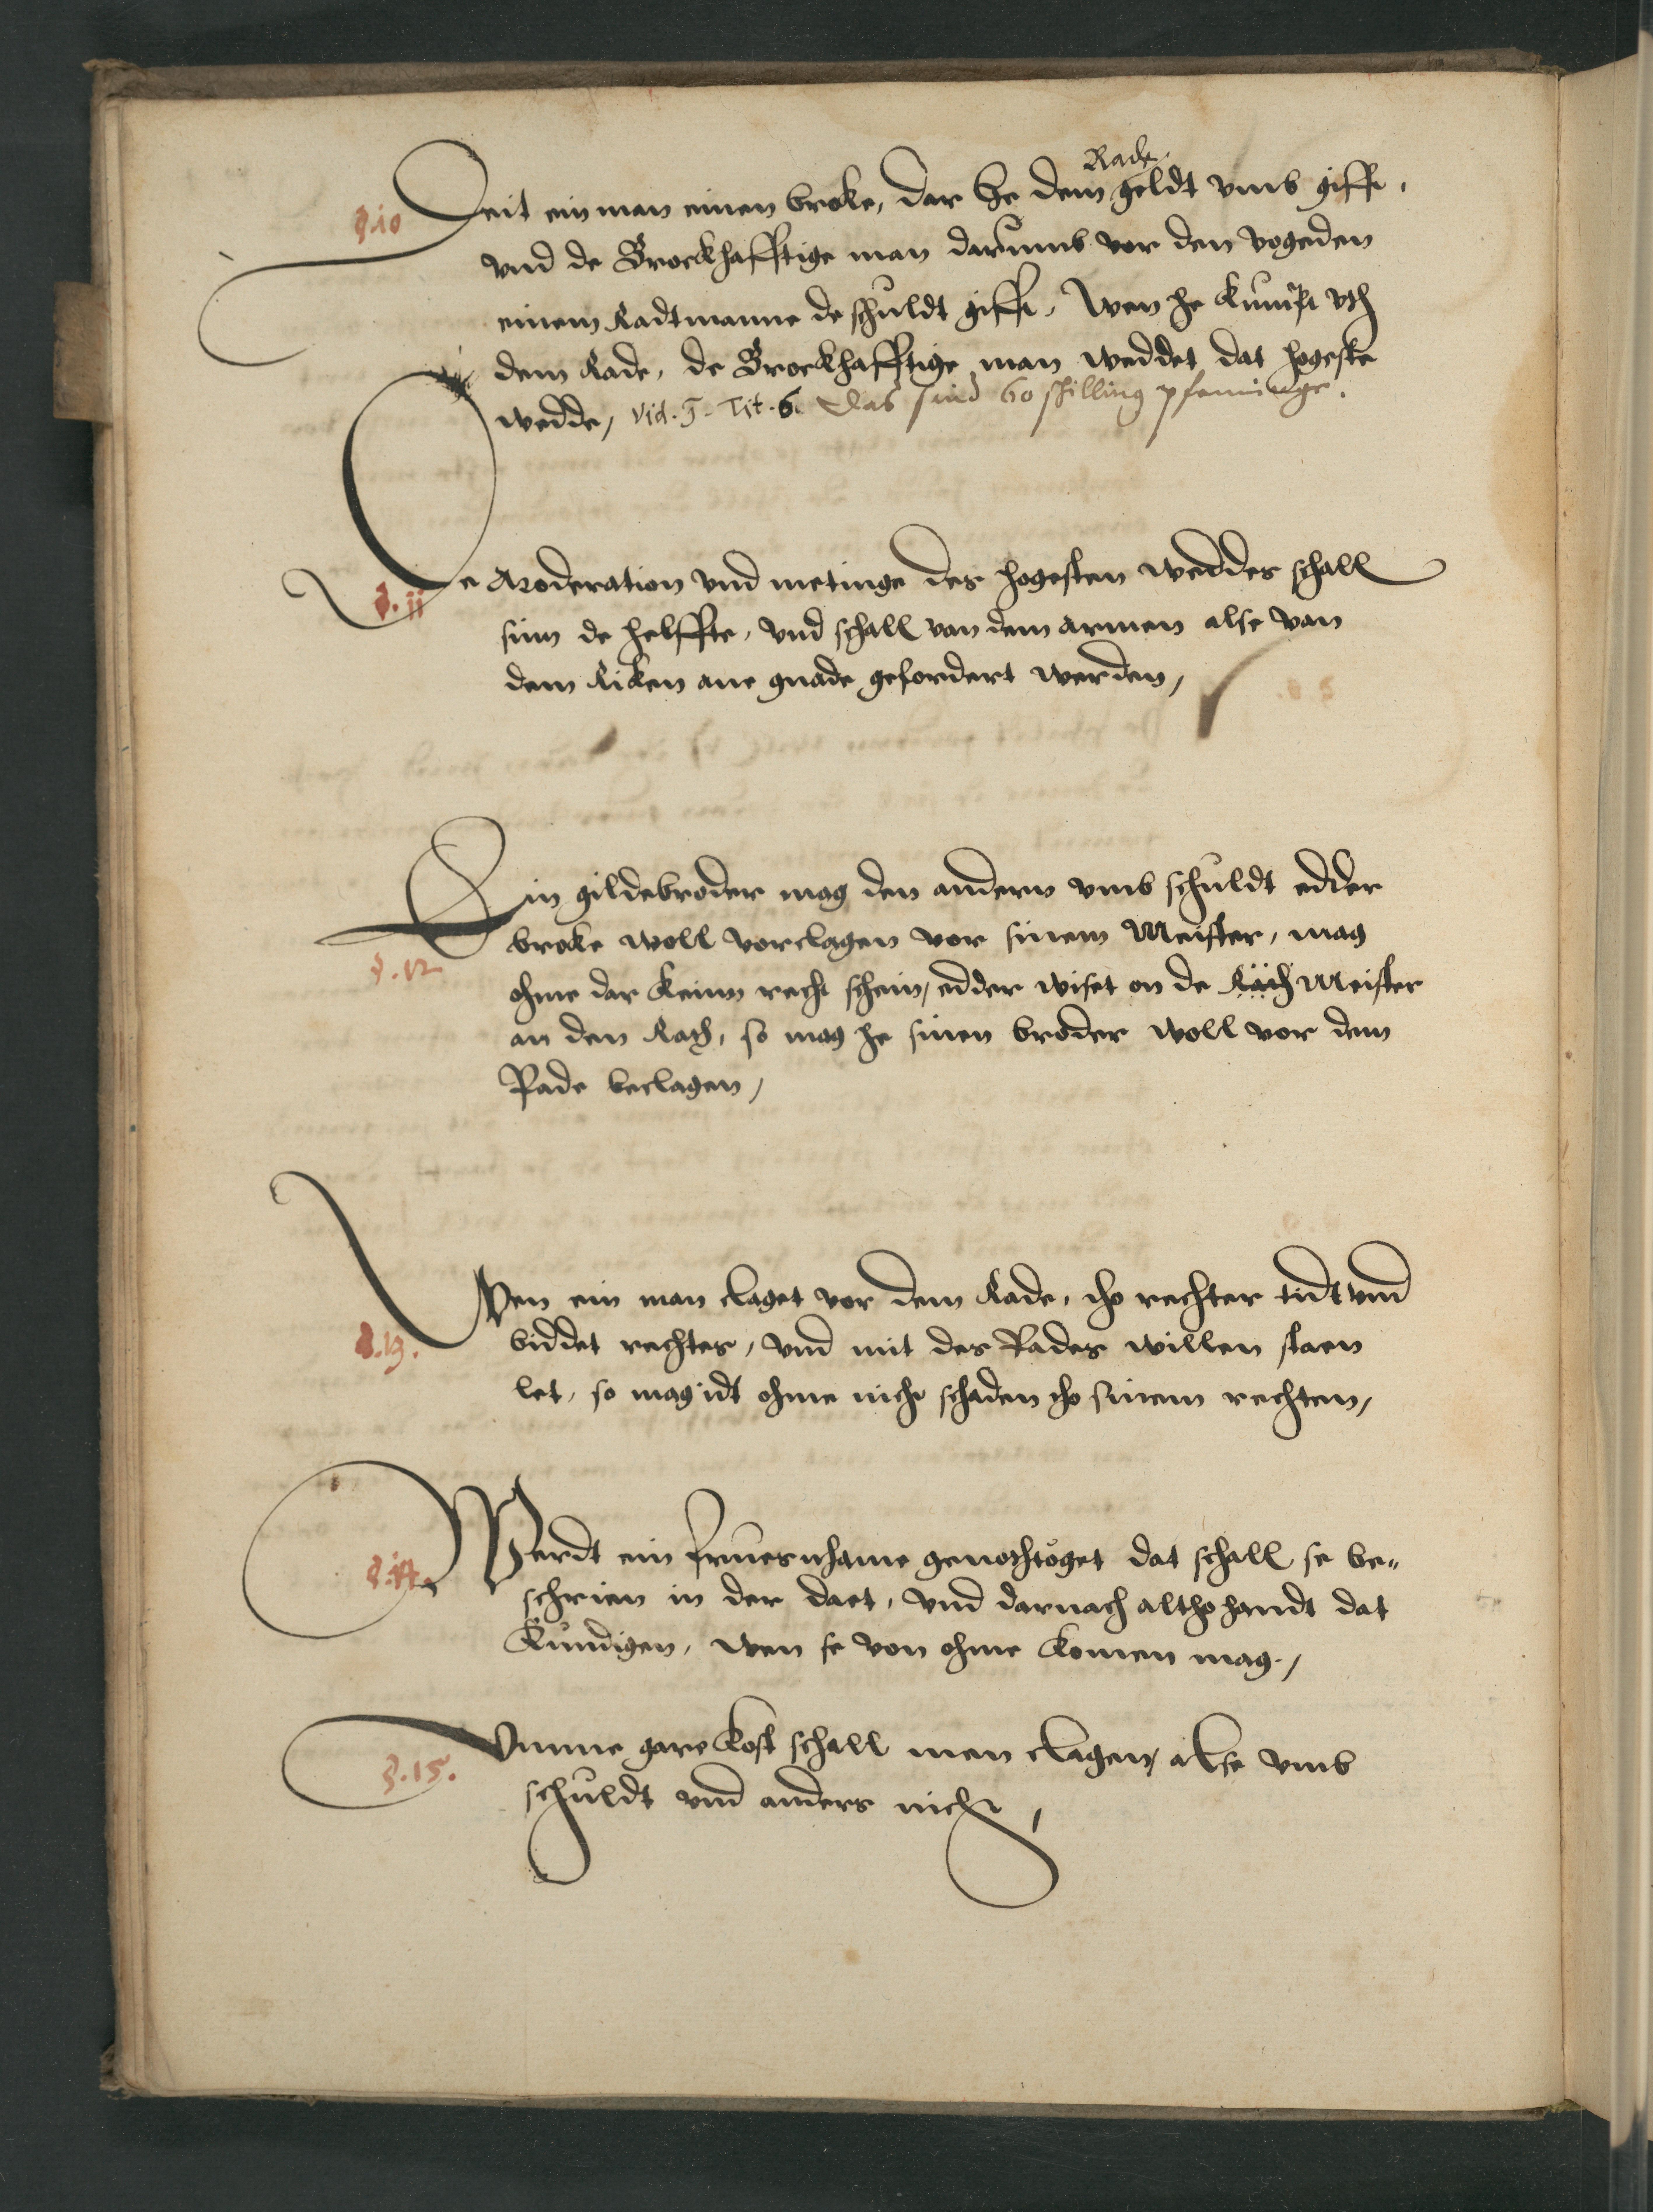 Rade
§.10 Deit ein man einen broke, dar he dem geldt vmb gifft,
vnd de Broeckhafftige man darumb vor den vogeden
einem Radtmanne de schuldt gifft, Wen he kumpt vth
dem Rade, de Broeckhafftige man weddet dat hogeste
wedde, Vid. T. Tit. 6. das sind 60 schilling pfenninge.
§.11 De Moderation vnd metinge des hogesten weddes schall
sinn de helffte, vnd schall van dem armen alse van
dem Riken ane gnade gefordert werden,
Ein gildebroder mag den andern vmb schuldt edder
§.12 broke woll vorclagen vor sinem Meister, mag
ohme dar keinn recht schein, edder wiset on de Meister
an den Rath, so mag he sinen broder woll vor dem
Rade beclagen,
Wen ein man claget vor dem Rade, tho rechter tidt vnd
§.13. biddet rechtes, vnd mit des Rades willen staen
let, so mag idt ohme nicht schaden tho sinem rechten,
§.14. Werdt ein fruesnhame genothtoget dat schall se be„
schrien in der daet, vnd darnach altho handt dat
kundigen, wen se von ohme komen mag.,
§.15. Vmme gare kost schall men clagen, alse vmb
schuldt vnd anders nicht,